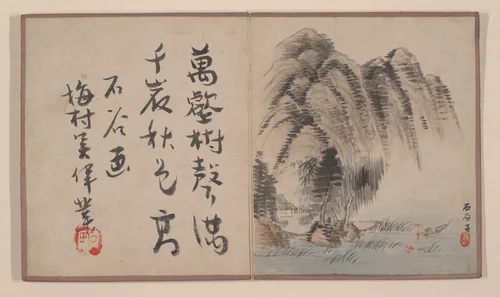 萬壑樹聲滿
千崖秋色高
石谷畫
梅村吳偉業
石谷子